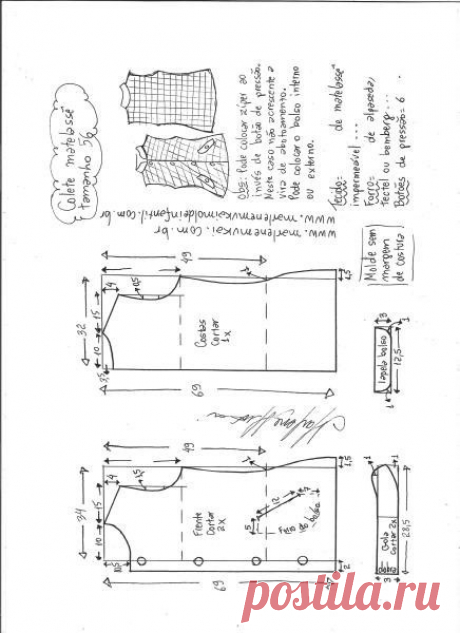 Colete matelassê
tamanho 56
OBS: Pode colocar zíper ao
invés de botão de pressão.
Neste caso não acrescente a
vira de abotoamento.
Pode colocar o bolso interno
ou externo.
www.marlenemukai.com.br
www.marlenemukaimoldeinfantil.com.br
Tecido: de matelassê
impermeável ...
Forro: de alpaseda,
Tectel ou bemberg...
Botões de pressão = 6
Molde sem
margem
de costura
49
4
1,5
15
32
10
3,5
Costas
cortar
1x
69
1,5
lapela bolso
3
1
12,5
1
49
4
1,5
15
34
10
Frente
cortar
2x
12
5
bolso
1,5
2
69
Gola
cortar 2x
dobra
3
1
28,5
postila.ru